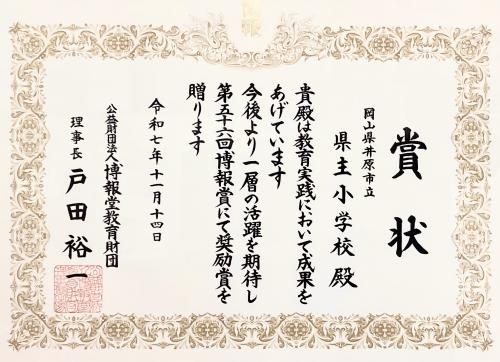 賞状
岡山県井原市立
県主小学校殿
貴殿は教育実践において成果を
あげています
今後より一層の活躍を期待し
第五十六回博報賞にて奨励賞を
贈ります
令和七年十一月十四日
公益財団法人博報堂教育財団
理事長 戸田裕一